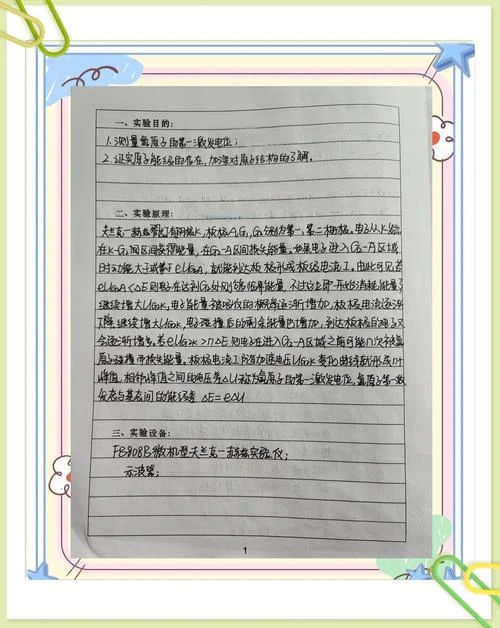 一、实验目的:
1.测量氩原子的第一激发电位;
2.证实原子能级的存在,加深对原子结构的了解。
二、实验原理:
夫兰克一赫兹管有阴极K,板极A,G₁,G₂分别为第一、第二栅极。电子从K级
在K-G₂间区间获得能量,在G₂-A区间损失能量。如果电子进入G₂-A区域
时动能大于或等于eUG₂A,就能到达板极形成板极电流I。由此可见若
eUG₂A<ΔE则电子在达到G₂处刚够临界能量,不过它立即开始消耗能量了
继续增大UG₂K,电子能量被吸收的概率逐渐增加,板极电流逐渐
下降 继续增大UG₂K,电子碰撞后的剩余能量也增加,到达板极的电子又
会逐渐增多。若eUG₂K>nΔE则电子在进入G₂-A区域之前可能n次被氩
原子碰撞而损失能量。板极电流I随加速电压UG₂K变化曲线就形成n个
峰值,相邻峰值之间的电压差ΔU称为氩原子的第一激发电位,氩原子第一激
发态与基态间的能级差 ΔE=eΔU
三、实验设备:
FB808B微机型夫兰克一赫兹实验仪;
示波器;
1